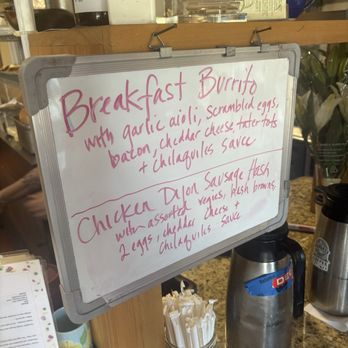 Breakfast Burrito
with garlic aioli, scrambled eggs,
bacon, cheddar cheese, tater tots
+ Chilaquiles sauce
Chicken Dijon Sausage Hash
with assorted vegies, hash browns,
2 eggs, cheddar cheese +
chilaquiles sauce